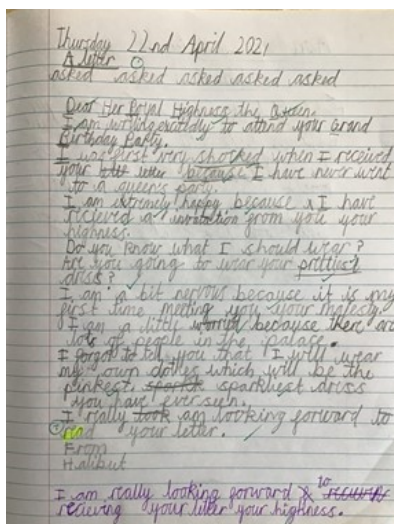 Thursday 22nd April 2021
A letter
asked asked asked asked asked
Dear Her Royal Highness the Queen.
I am writing to attend your Grand
Birthday Party.
I was first very shocked when I received
your letter because I have never went
to a queen's party.
I am extremely happy because I have
recieved a invatation from you your
highness.
Do you know what I should wear?
Are you going to wear your prettiest
driss?
I am a bit nervous because it is my
first time meeting you your majesty.
I am a little worried because there are
lots of people in the palace.
I forgot to tell you that I will wear
my own clothes which will be the
pinkest, sparkliest driss
you have ever seen.
I really am looking forward to
read your letter.
From
Halibut
I am really looking forward to
recieving your letter your highness.